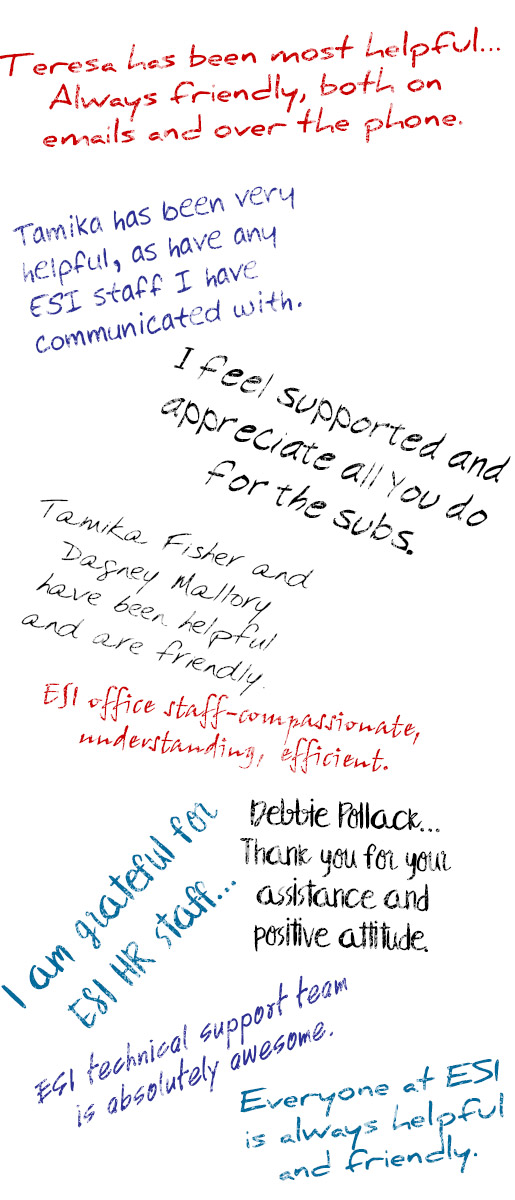 Teresa has been most helpful...
Always friendly, both on
emails and over the phone.
Tamika has been very
helpful, as have any
ESI staff I have
communicated with.
I feel supported and
appreciate all you do
for the subs.
Tamika Fisher and
Dagney Mallory
have been helpful
and are friendly.
ESI office staff-compassionate,
understanding, efficient.
Debbie Pollack...
Thank you for your
assistance and
positive attitude.
I am grateful for
ESI HR staff...
ESI technical support team
is absolutely awesome.
Everyone at ESI
is always helpful
and friendly.